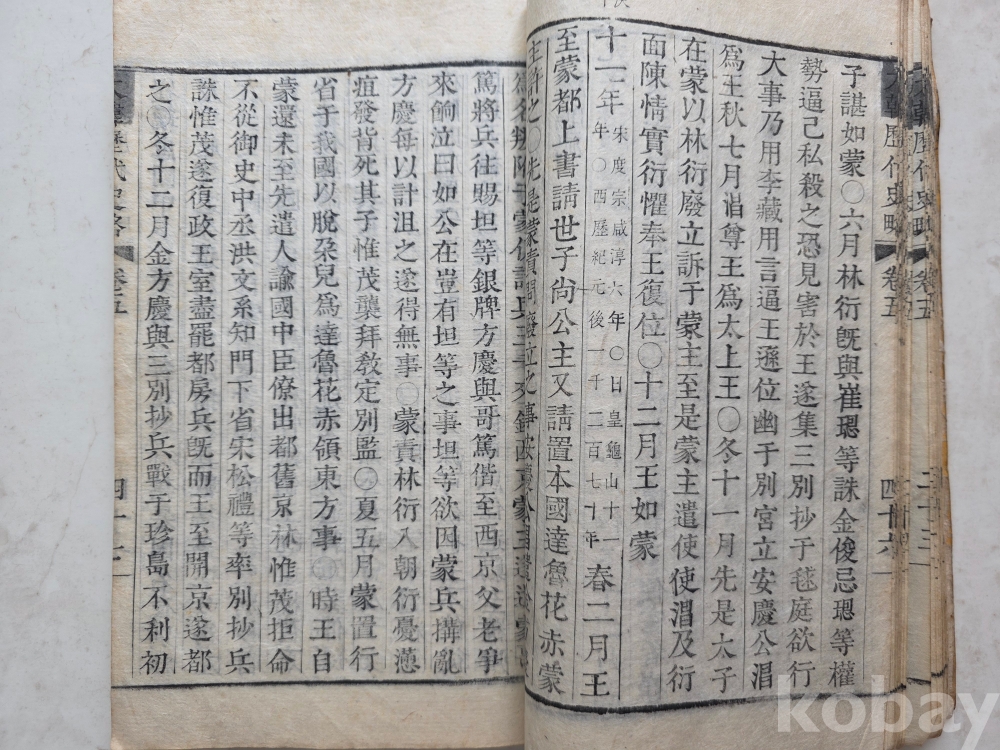 子諶如蒙○六月林衍旣與崔璁等誅金俊忌璁等權
勢逼己私殺之恐見害於王遂集三別抄于毬庭欲行
大事乃用李藏用言逼王遜位幽于別宮立安慶公淐
爲王秋七月淐尊王爲太上王○冬十一月先是太子
在蒙以林衍廢立訴于蒙主至是蒙主遣使使淐及衍
面陳情實衍懼奉王復位○十二月王如蒙
十一年宋度宗咸淳六年○日皇龜山十一年○西歷紀元後一千二百七十年春二月王
至蒙都上書請世子尙公主又請置本國達魯花赤蒙
主許之○先是蒙責問廢立之事
篤將兵往賜坦等銀牌方慶與哥篤偕至西京父老爭
來餉泣曰如公在豈有坦等之事坦等欲因蒙兵搆亂
方慶每以計沮之遂得無事○蒙責林衍入朝衍憂懣
疽發背死其子惟茂襲拜敎定別監○夏五月蒙置行
省于我國以脫朶兒爲達魯花赤領東方事○時王自
蒙還未至先遣人諭國中臣僚出都舊京林惟茂拒命
不從御史中丞洪文系知門下省宋松禮等率別抄兵
誅惟茂遂復政王室盡罷都房兵旣而王至開京遂都
之○冬十二月金方慶與三別抄兵戰于珍島不利初
歷代史略 卷五 四十六
歷代史略 卷五 四十七
kobay